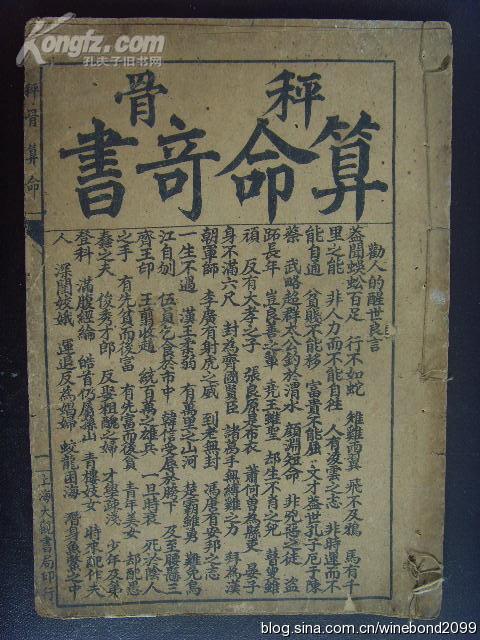 Kongfz.com
孔夫子旧书网
秤骨
算命奇書
勸人的醒世良言
蓋聞蜈蚣百足 行不如蛇 雞兩翼 飛不及鴉 馬有千
里之能 非人力而不能自往 人有凌雲之志 非時運而不
能自通 貧賤不能移 富貴不能屈 文才蓋世孔子厄于陳
蔡 武略超群太公釣於渭水 顏淵短命 非兇惡之徒 盜
長年 豈良善之輩 堯王雖聖 却生不肖之兒 瞽叟雖
頑 反有大孝之子 張良原是布衣 蕭何曾為縣吏 晏子
身不滿六尺 封為齊國賢臣 諸葛手無縛雞之力 拜為漢
朝軍師 李廣有射虎之威 到老無封 馮唐有安邦之志
一生不遇 漢王柔弱 有萬里之山河 楚霸雖勇 難免烏
江自刎 伍員乞食於市中 韓信受辱於胯下 及至腰懸三
齊王印 王翦收趙 統百萬之雄兵 一旦時衰 死於陰人
之手 有先貧而後富 有先富而後貧 青年美女 却配愚
蠢之夫 俊秀才郎 反娶粗醜之婦 才學疎淺 少年及第
登科 滿腹經綸 皓首仍居深山 青樓妓女 時來配作夫
人 深閨娥 運退反為娼婦 蛟龍困海 潛身魚鱉之中
秤骨算命
上海大觀書局印行
blog.sina.com.cn/winebond2099